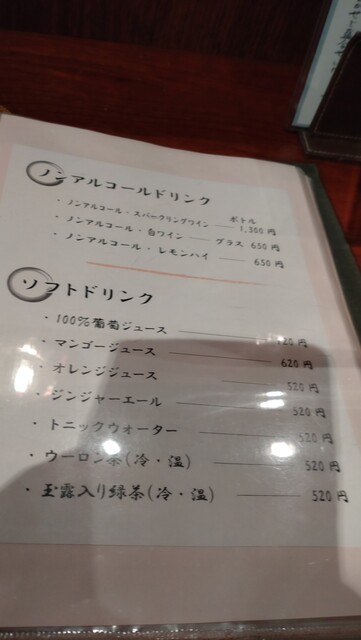 ノンアルコールドリンク
・ノンアルコール・スパークリングワイン ボトル 1,300円
・ノンアルコール・白ワイン グラス 650円
・ノンアルコール・レモンハイ 650円
ソフトドリンク
・100%葡萄ジュース 20円
・マンゴージュース 620円
・オレンジジュース 520円
・ジンジャーエール 520円
・トニックウォーター 520円
・ウーロン茶(冷・温) 520円
・玉露入り緑茶(冷・温) 520円